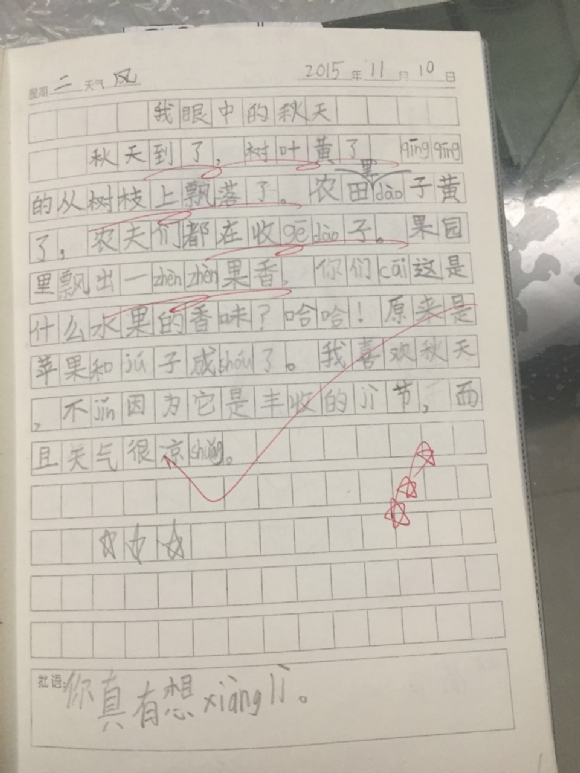 星期 二 天气 风 2015 年 11 月 10 日
我眼中的秋天
秋天到了，树叶黄了，qīng qīng
里
的从树枝上飘落了。农田dào子黄
了，农夫们都在收gē dào子。果园
里飘出一zhèn zhèn果香。你们cāi这是
什么水果的香味？哈哈！原来是
苹果和jú子成shóu了。我喜欢秋天
，不jǐn因为它是丰收的jì节，而
且天气很凉shuǎng。
☆☆☆
批语：你真有想xiàng lì。